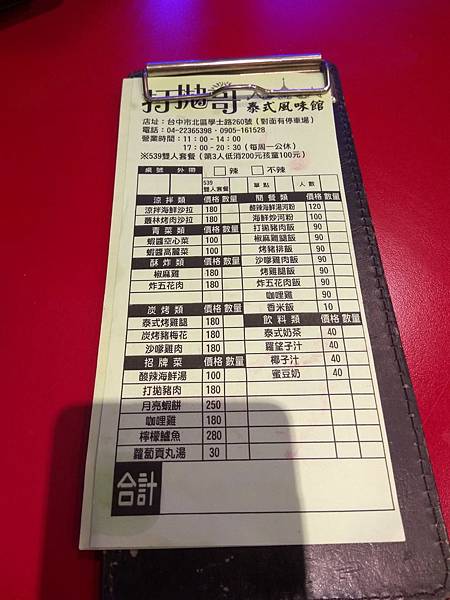 打拋哥
泰式風味館
店址：台中市北區學士路260號（對面有停車場）
電話：04-22365398・0905-161528
營業時間：11：00-14：00
17：00-20：30（每周一公休）
※539雙人套餐（第3人低消200元孩童100元）
桌號 外帶 辣 不辣
539雙人套餐 單點 人數
涼拌類 價格 數量 簡餐類 價格 數量
涼拌海鮮沙拉 180 酸辣海鮮湯河粉 120
叢林烤肉沙拉 180 海鮮炒河粉 100
青菜類 價格 數量 打拋豬肉飯 90
蝦醬空心菜 100 椒麻雞腿飯 90
蝦醬高麗菜 100 烤豬排飯 90
酥炸類 價格 數量 沙嗲雞肉飯 90
椒麻雞 180 烤雞腿飯 90
炸五花肉 180 炸五花肉飯 90
咖哩雞 90
香米飯 10
炭烤類 價格 數量 飲料類 價格 數量
泰式烤雞腿 180 泰式奶茶 40
炭烤豬梅花 180 羅望子汁 40
沙嗲雞肉 180 椰子汁 40
招牌菜 價格 數量 蜜豆奶 40
酸辣海鮮湯 100
打拋豬肉 180
月亮蝦餅 250
咖哩雞 180
檸檬鱸魚 280
蘿蔔貢丸湯 30
合計